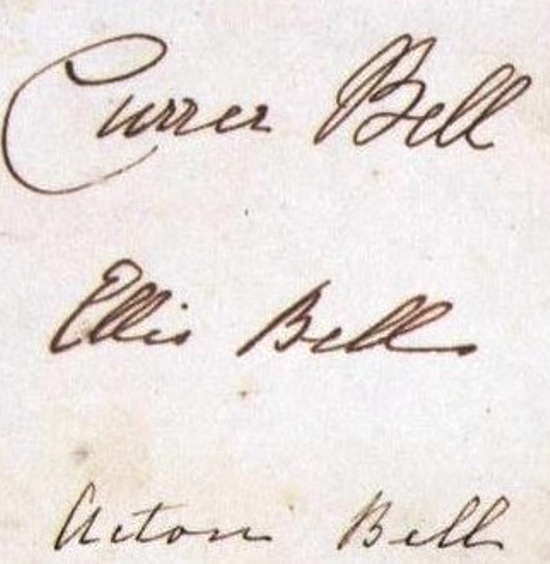 Currer Bell
Ellis Bell
Acton Bell